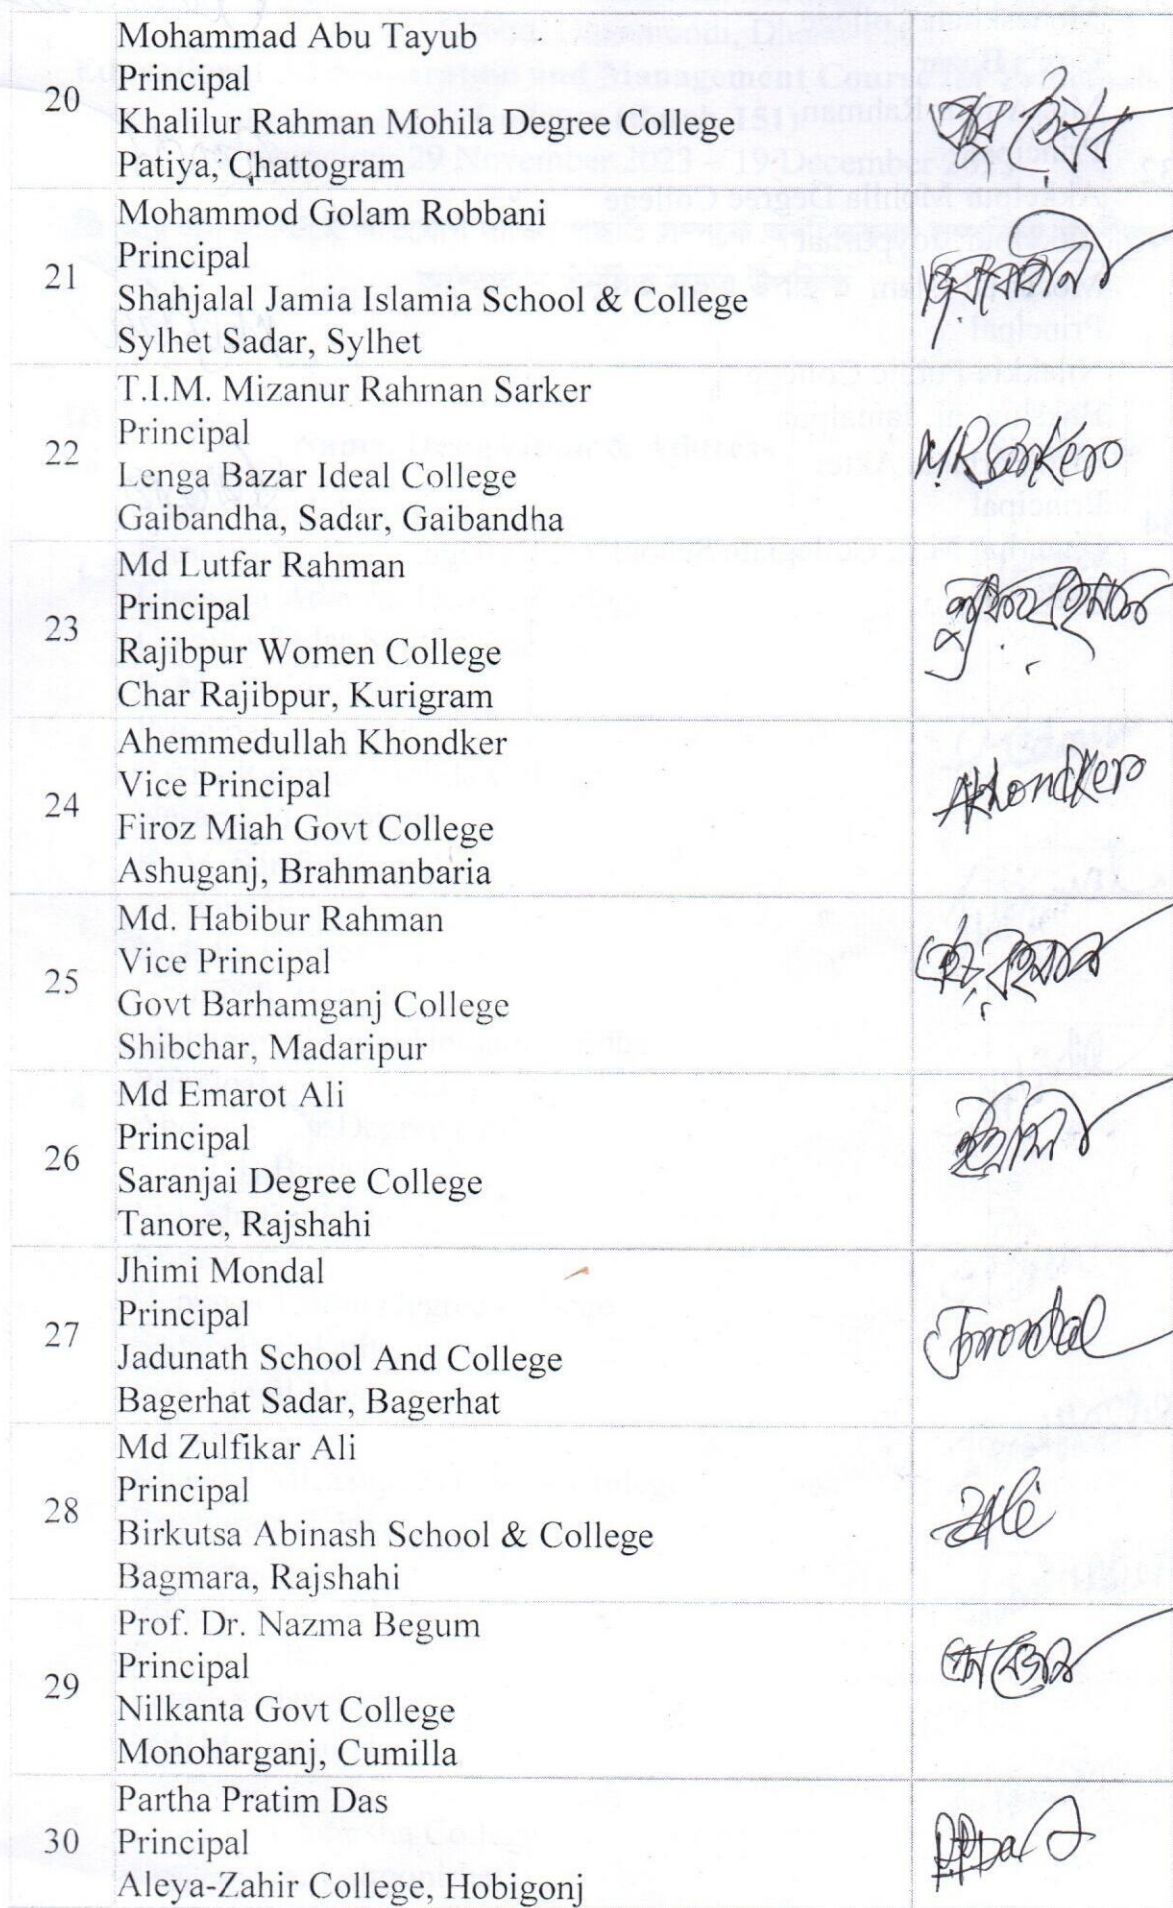 20
Mohammad Abu Tayub
Principal
Khalilur Rahman Mohila Degree College
Patiya, Chattogram
21
Mohammod Golam Robbani
Principal
Shahjalal Jamia Islamia School & College
Sylhet Sadar, Sylhet
22
T.I.M. Mizanur Rahman Sarker
Principal
Lenga Bazar Ideal College
Gaibandha, Sadar, Gaibandha
M.R. Sarker
23
Md Lutfar Rahman
Principal
Rajibpur Women College
Char Rajibpur, Kurigram
24
Ahemmedullah Khondker
Vice Principal
Firoz Miah Govt College
Ashuganj, Brahmanbaria
AKhondker
25
Md. Habibur Rahman
Vice Principal
Govt Barhamganj College
Shibchar, Madaripur
26
Md Emarot Ali
Principal
Saranjai Degree College
Tanore, Rajshahi
27
Jhimi Mondal
Principal
Jadunath School And College
Bagerhat Sadar, Bagerhat
Jmondal
28
Md Zulfikar Ali
Principal
Birkutsa Abinash School & College
Bagmara, Rajshahi
ZAli
29
Prof. Dr. Nazma Begum
Principal
Nilkanta Govt College
Monoharganj, Cumilla
30
Partha Pratim Das
Principal
Aleya-Zahir College, Hobigonj
PPDas